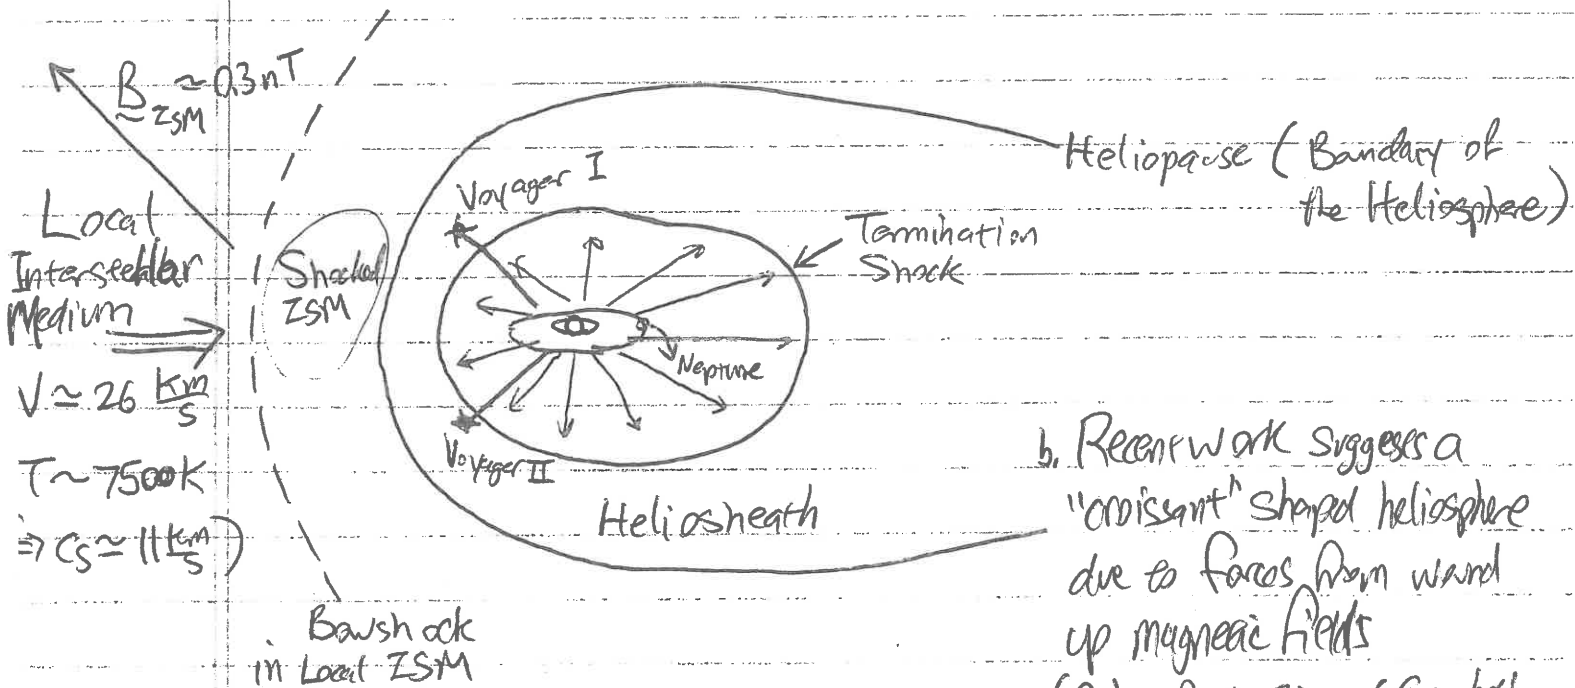 B ISM ≃ 0.3nT
Local
Interstellar
Medium
V ≃ 26 km/s
T ~ 7500K
⇒ Cs ≃ 11 km/s)
Shocked
ISM
Bowshock
in Local ISM
Voyager I
Voyager II
Neptune
Termination
Shock
Heliosheath
Heliopause (Boundary of
the Heliosphere)
b. Recent work suggests a
"croissant" shaped heliosphere
due to forces from wound
up magnetic fields